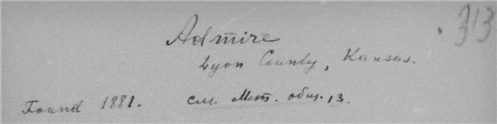 313
Admire
Lyon County, Kansas.
Found 1881. см. Мет. общ. 13.